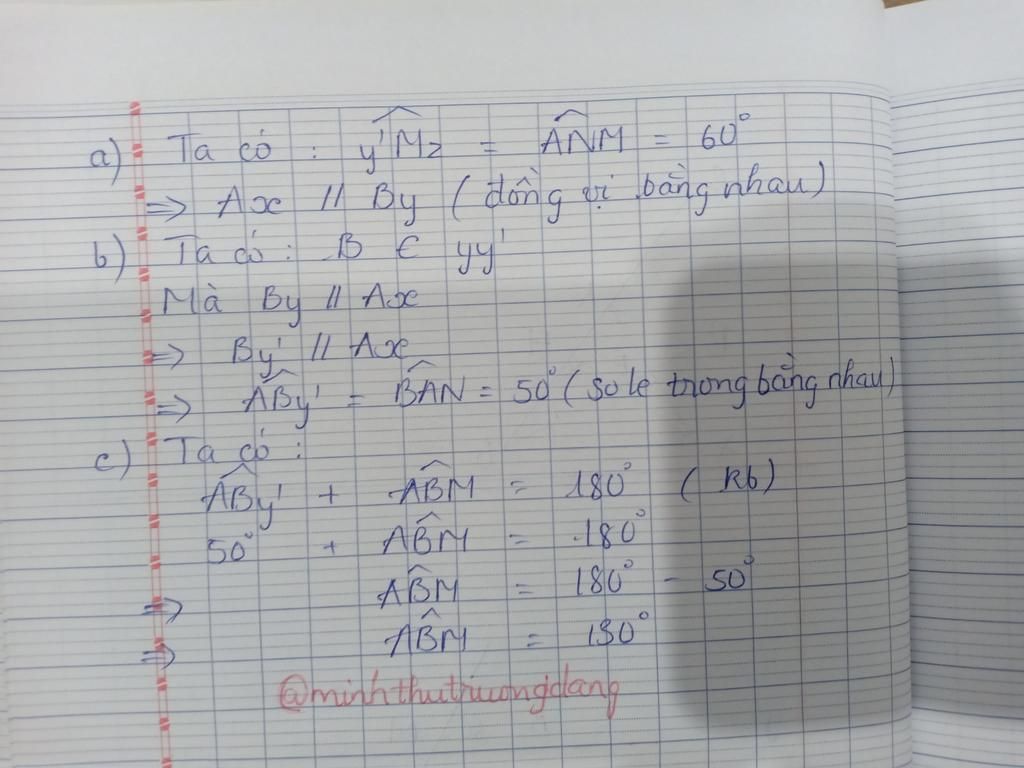 a) Ta có : y'Mz = ANM = 60°
=> Ax // By (đồng vị bằng nhau)
b) Ta có : B ∈ yy'
Mà By // Ax
=> By' // Ax
=> ABy' = BAN = 50° (so le trong bằng nhau)
c) Ta có :
ABy' + ABM = 180° (kb)
50° + ABM = 180°
=> ABM = 180° - 50°
=> ABM = 130°
@minhthutruongdang